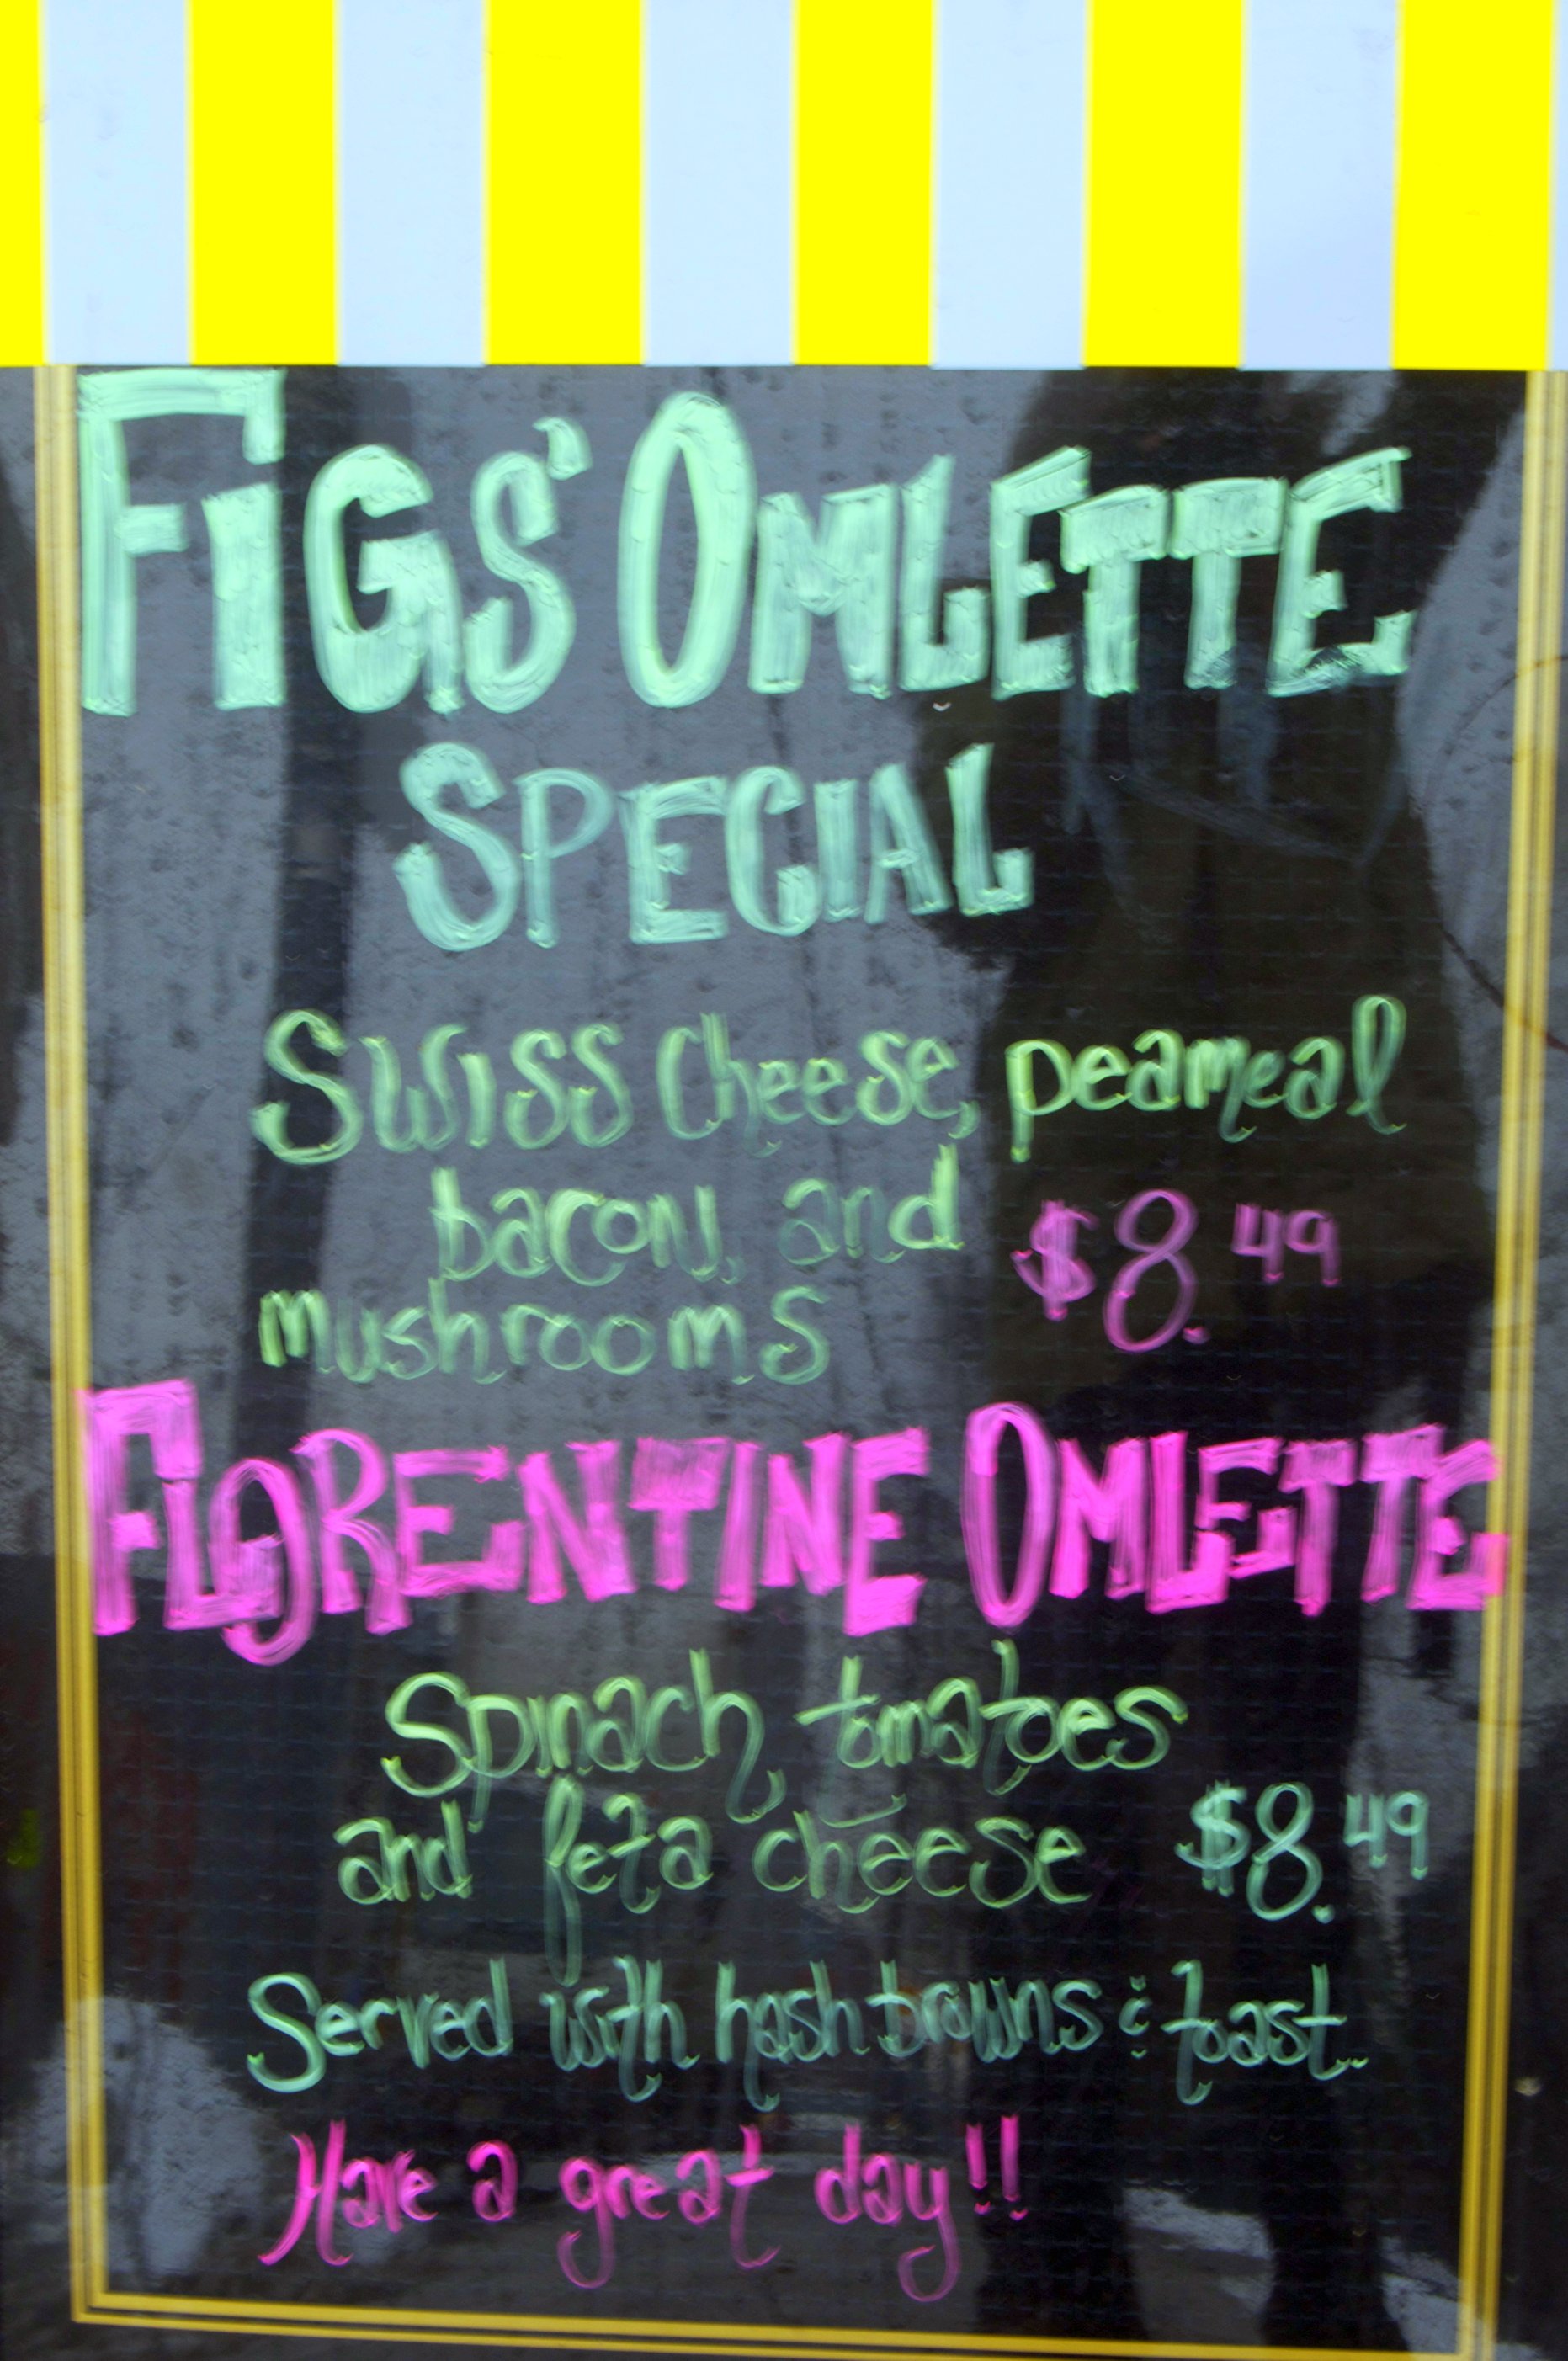 FiGS' OMLETTE
SPECIAL
Swiss cheese, peameal
bacon, and $8.49
mushrooms
FLORENTINE OMLETTE
Spinach, tomatoes
and feta cheese $8.49
Served with hash browns & toast.
Have a great day!!